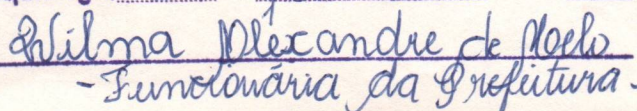 Wilma Alêxandre de Melo
- Funcionária da Prefeitura.